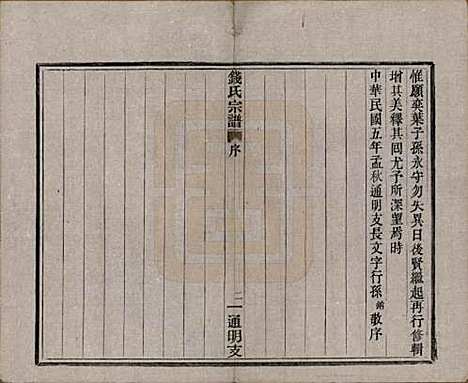 惟願奕葉子孫永守勿失異日後賢繼起再行修輯
增其美釋其回尤予所深望焉時
中華民國五年孟秋通明支長文字行孫 敬序
錢氏宗譜 序 二 通明支